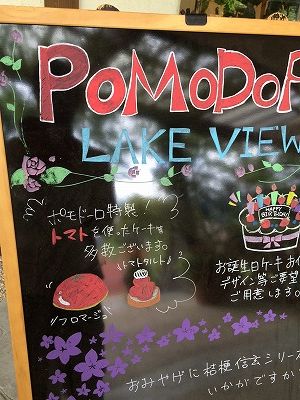 POMODOR
LAKE VIEW
ポモドーロ特製!
トマトを使ったケーキを
多数ございます。
トマトタルト♪
フロマージュ
HAPPY
BIRTHDAY
お誕生日ケーキお
デザイン等ご要望
ご用意します
おみやげに桔梗信玄シリー
いかがですか